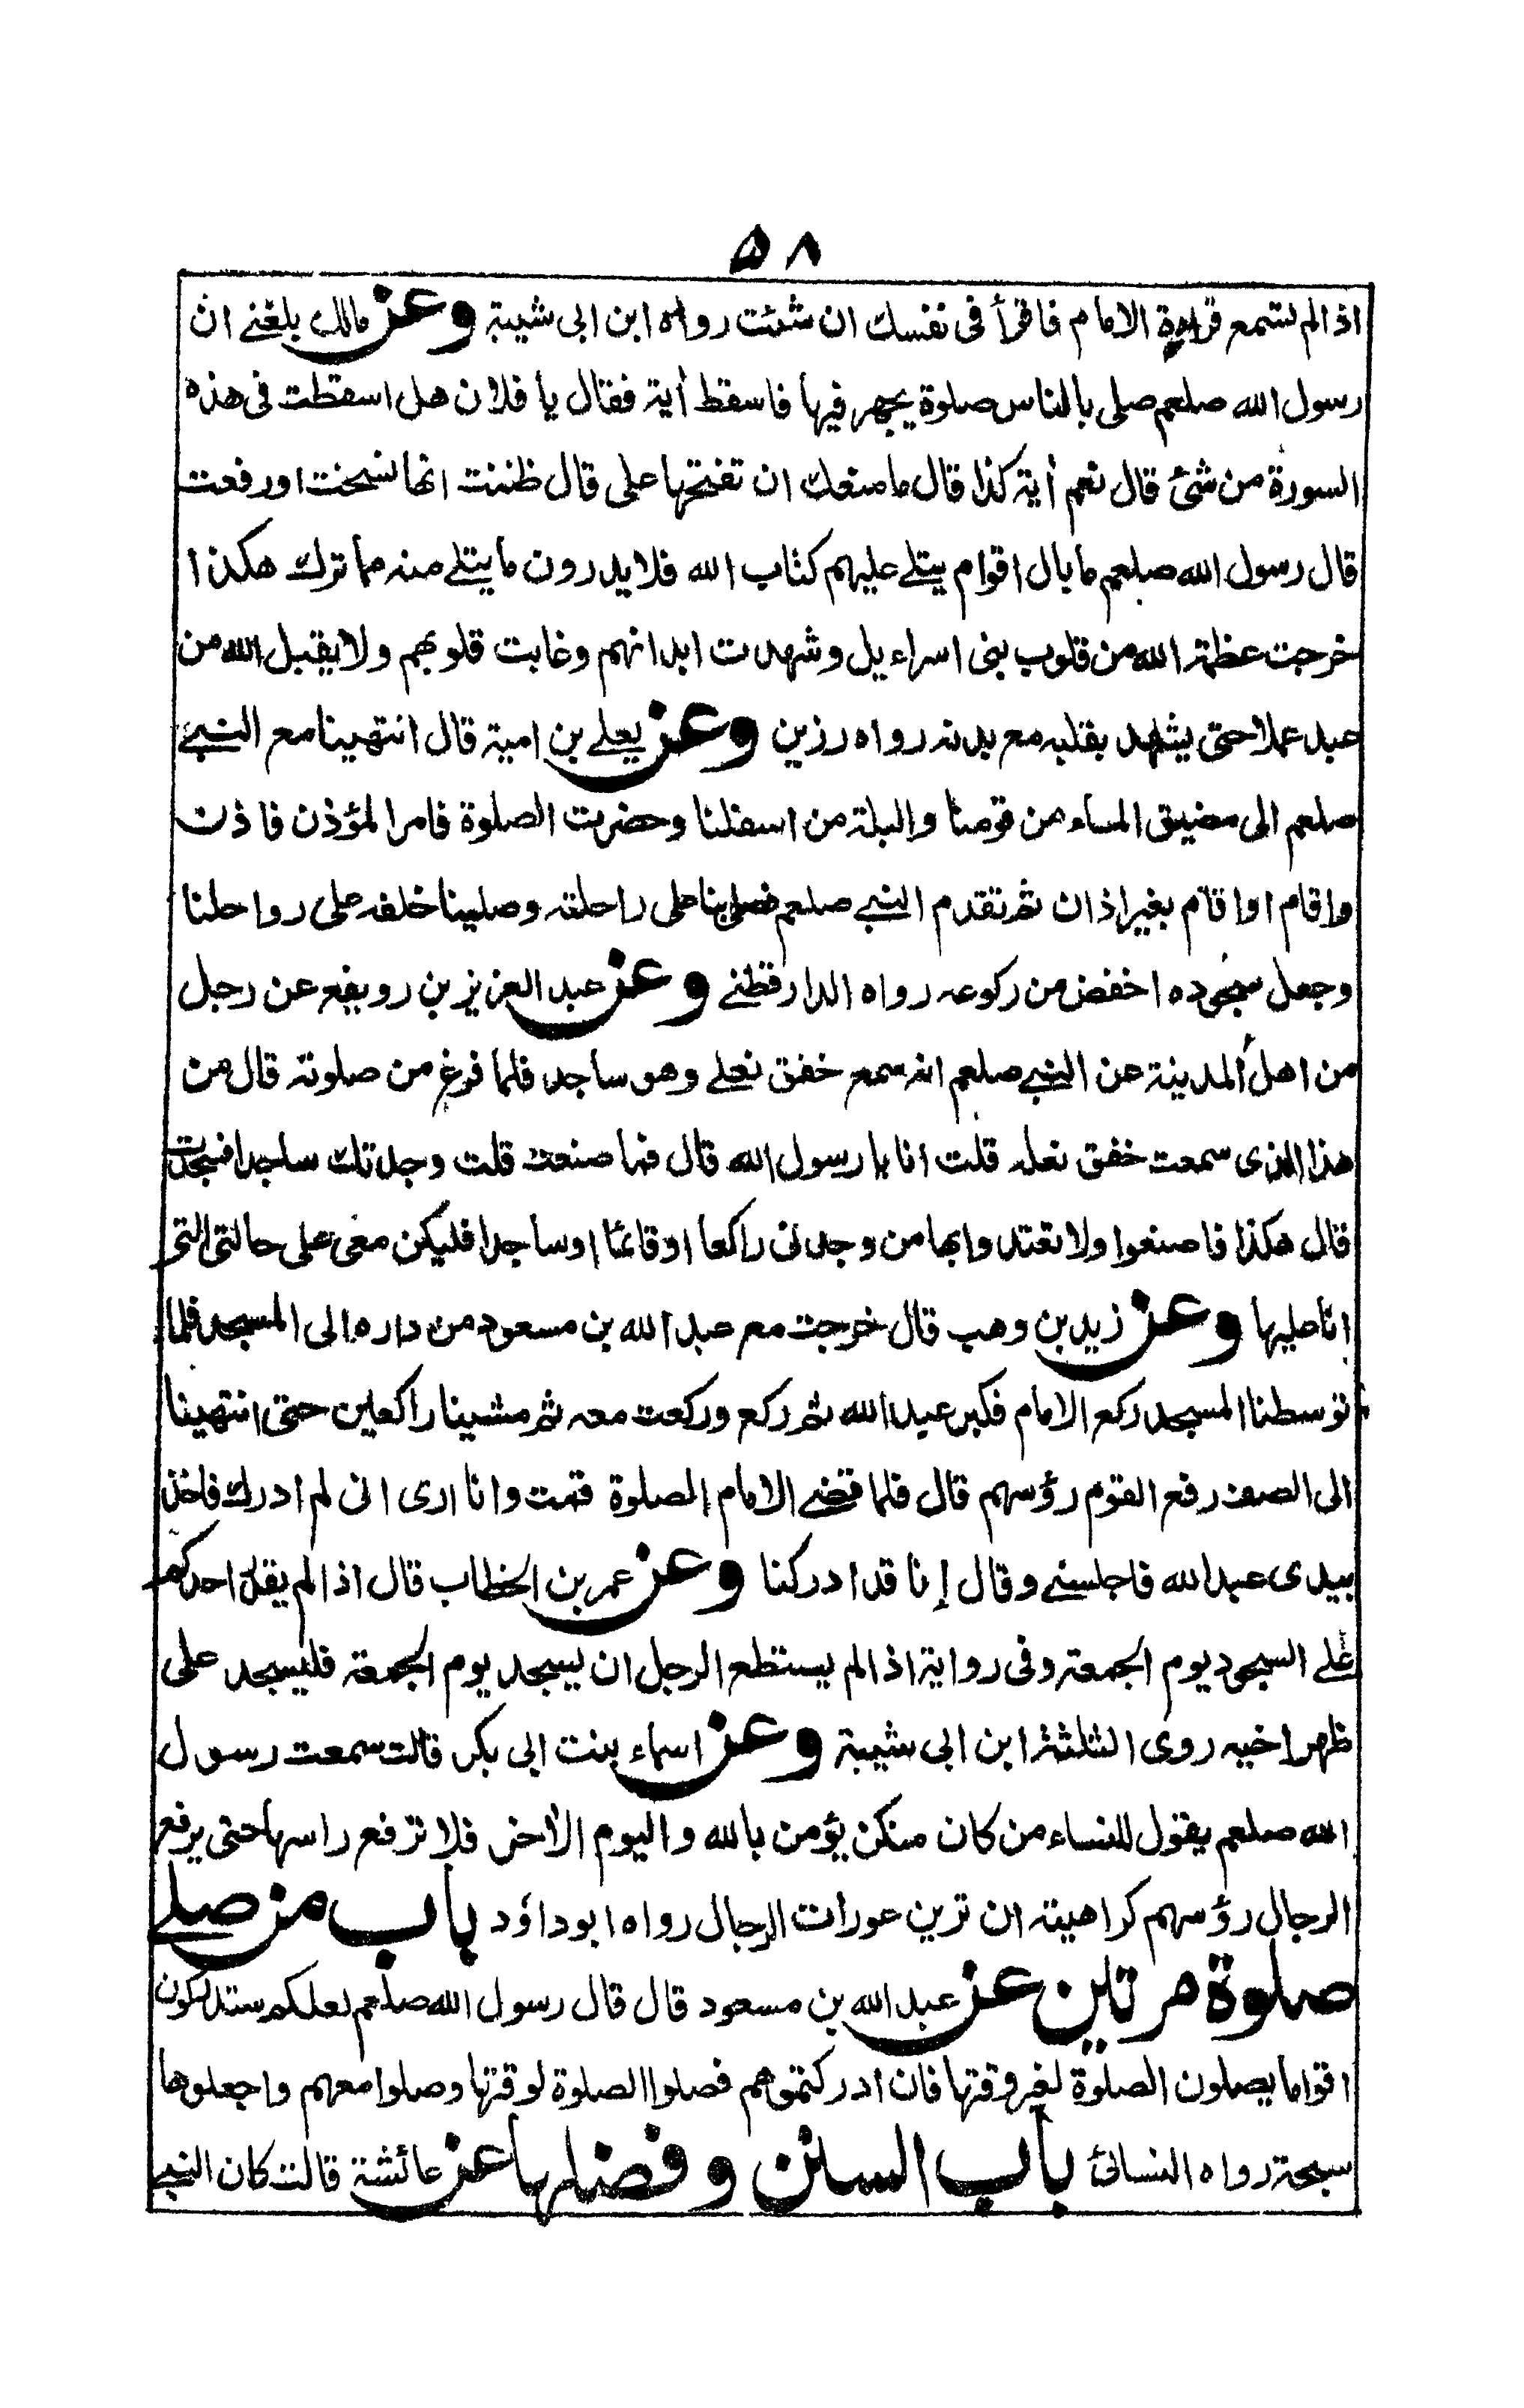 ۵۸
اذا لم تسمع قراءة الامام فاقرأ فى نفسك ان شئت رواه ابن ابى شيبة وعن مالك بلغنے ان
رسول الله صلعم صلى بالناس صلوة يجهر فيها فاسقط أية فقال يا فلان هل اسقطت فى هذه
السورة من شئ قال نعم أية كذا قال ما منعك ان تفتحها على قال ظننت انها نسخت او رفعت
قال رسول الله صلعم ما بال اقوام يتلے عليهم كتاب الله فلا يدرون ما يتلے منه مما ترك هكذا
خرجت عظمة الله من قلوب بنى اسراءيل وشهدت ابدانهم وغابت قلوبهم ولا يقبل الله من
عبد عملا حتى يشهد بقلبه مع بدنه رواه رزين وعن يعلے بن امية قال انتهينا مع النبے
صلعم الى مضيق السماء من فوقنا والبلة من اسفلنا وحضرت الصلوة فامر المؤذن فاذن
واقام او اقام بغير اذان ثم تقدم النبے صلعم فصلى بنا على راحلته وصلينا خلفه على رواحلنا
وجعل سجوده اخفض من ركوعه رواه الدارقطنے وعن عبد العزيز بن رويفع عن رجل
من اهل المدينة عن النبے صلعم انه سمع خفق نعلے وهو ساجد فلما فرغ من صلوته قال من
هذا الذى سمعت خفق نعله قلت انا يا رسول الله قال فما صنعت قلت وجدتك ساجدا فسجدت
قال هكذا فاصنعوا ولا تعتدوا بها من وجدنى راكعا او قائما او ساجدا فليكن معى على حالتى التى
انا عليها وعن زيد بن وهب قال خرجت مع عبد الله بن مسعود من داره الى المسجد فلما
توسطنا المسجد ركع الامام فكبر عبد الله ثم ركع وركعت معه ثم مشينا راكعين حتى انتهينا
الى الصف رفع القوم رؤسهم قال فلما قضے الامام الصلوة قمت وانا ارى انى لم ادرك فاخذ
بيدى عبد الله فاجلسنے وقال إنا قد ادركنا وعن عمر بن الخطاب قال اذا لم يقدر احدكم
علے السجود يوم الجمعة وفى رواية اذا لم يستطع الرجل ان يسجد يوم الجمعة فليسجد على
ظهر اخيه روى الثلثة ابن ابى شيبة وعن اسماء بنت ابى بكر قالت سمعت رسول
الله صلعم يقول للنساء من كان منكن يؤمن بالله واليوم الأخر فلا ترفع راسها حتى يرفع
الرجال رؤسهم كراهية ان ترين عورات الرجال رواه ابو داؤد باب من صلے
صلوة مرتين عن عبد الله بن مسعود قال قال رسول الله صلعم لعلكم ستدركون
اقواما يصلون الصلوة لغير وقتها فان ادركتموهم فصلوا الصلوة لوقتها وصلوا معهم واجعلوها
سبحة رواه النسائئ باب السنن وفضلها عن عائشة قالت كان النبے